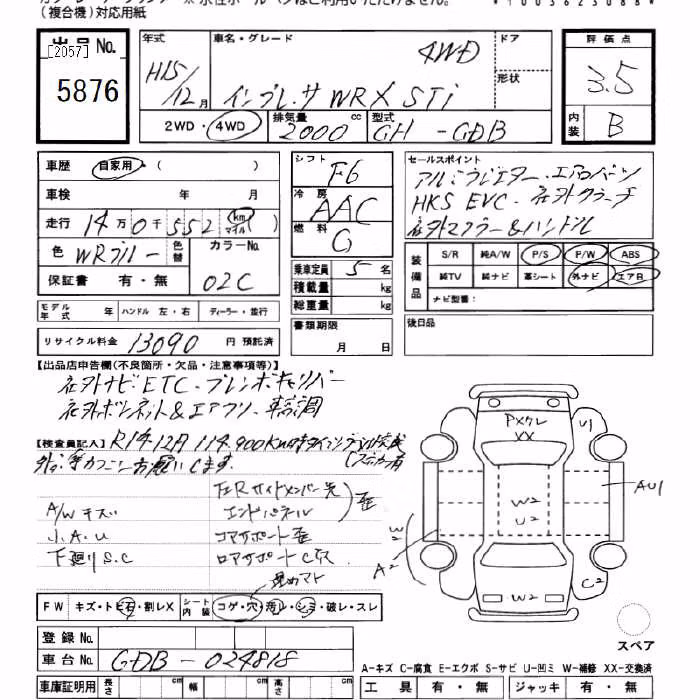 (複合機)対応用紙
出品No.
[2057]
5876
年式 H15/12月
車名・グレード 4WD
インプレッサ WRX STi
ドア
形状
2WD・4WD
排気量 2000 cc
型式 GH-GDB
評価点 3.5
内装 B
車歴 自家用・( )
車検 年 月
走行 14万0千552 km マイル
色 WRブルー 色替
カラーNo. 02C
保証書 有・無
シフト F6
冷房 AAC
燃料 G
乗車定員 5 名
積載量 kg
総重量 kg
セールスポイント
アルミラジエター・エアロパーツ
HKS EVC・社外クラッチ
社外マフラー&ハンドル
装備品
S/R 純A/W P/S P/W ABS
純TV 純ナビ 革シート 外ナビ エアB
ナビ型番:
モデル年式 年 ハンドル 左・右 ディーラー・並行
リサイクル料金 13090 円 預託済
書類期限 月 日
後日品
【出品店申告欄(不良箇所・欠品・注意事項等)】
社外ナビ ETC・ブレンボキャリパー
社外ボンネット&エアフロ・車高調
【検査員記入】 R1年12月 114,900km時タイミングベルト交換
(ステッカー有
F&Rサイドメンバー先
エンドパネル
歪
A/W キズ
小A.U
コアサポート歪
下廻りS.C
ロアサポートC穴
PXクレ
XX
U1
AU1
W2
U2
W2
A2
W2
C2
FW キズ・トビ石・割レX
シート内装 コゲ・穴・汚レ・シミ・破レ・スレ
登録No.
車台No. GDB-024818
車庫証明用 長さ cm 幅 cm 高さ cm
スペア
A-キズ C-腐食 E-エクボ S-サビ U-凹ミ W-補修 XX-交換済
工具 有・無 ジャッキ 有・無